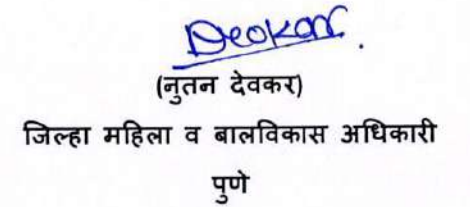 Deokar.
(नुतन देवकर)
जिल्हा महिला व बालविकास अधिकारी
पुणे